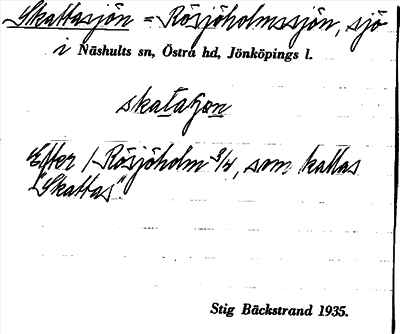 Skattasjön = Rösjöholmssjön, sjö
i Näshults sn, Östra hd, Jönköpings l.
Efter 1 Rösjöholm 3/4, som kallas
"Skattas".
Stig Bäckstrand 1935.